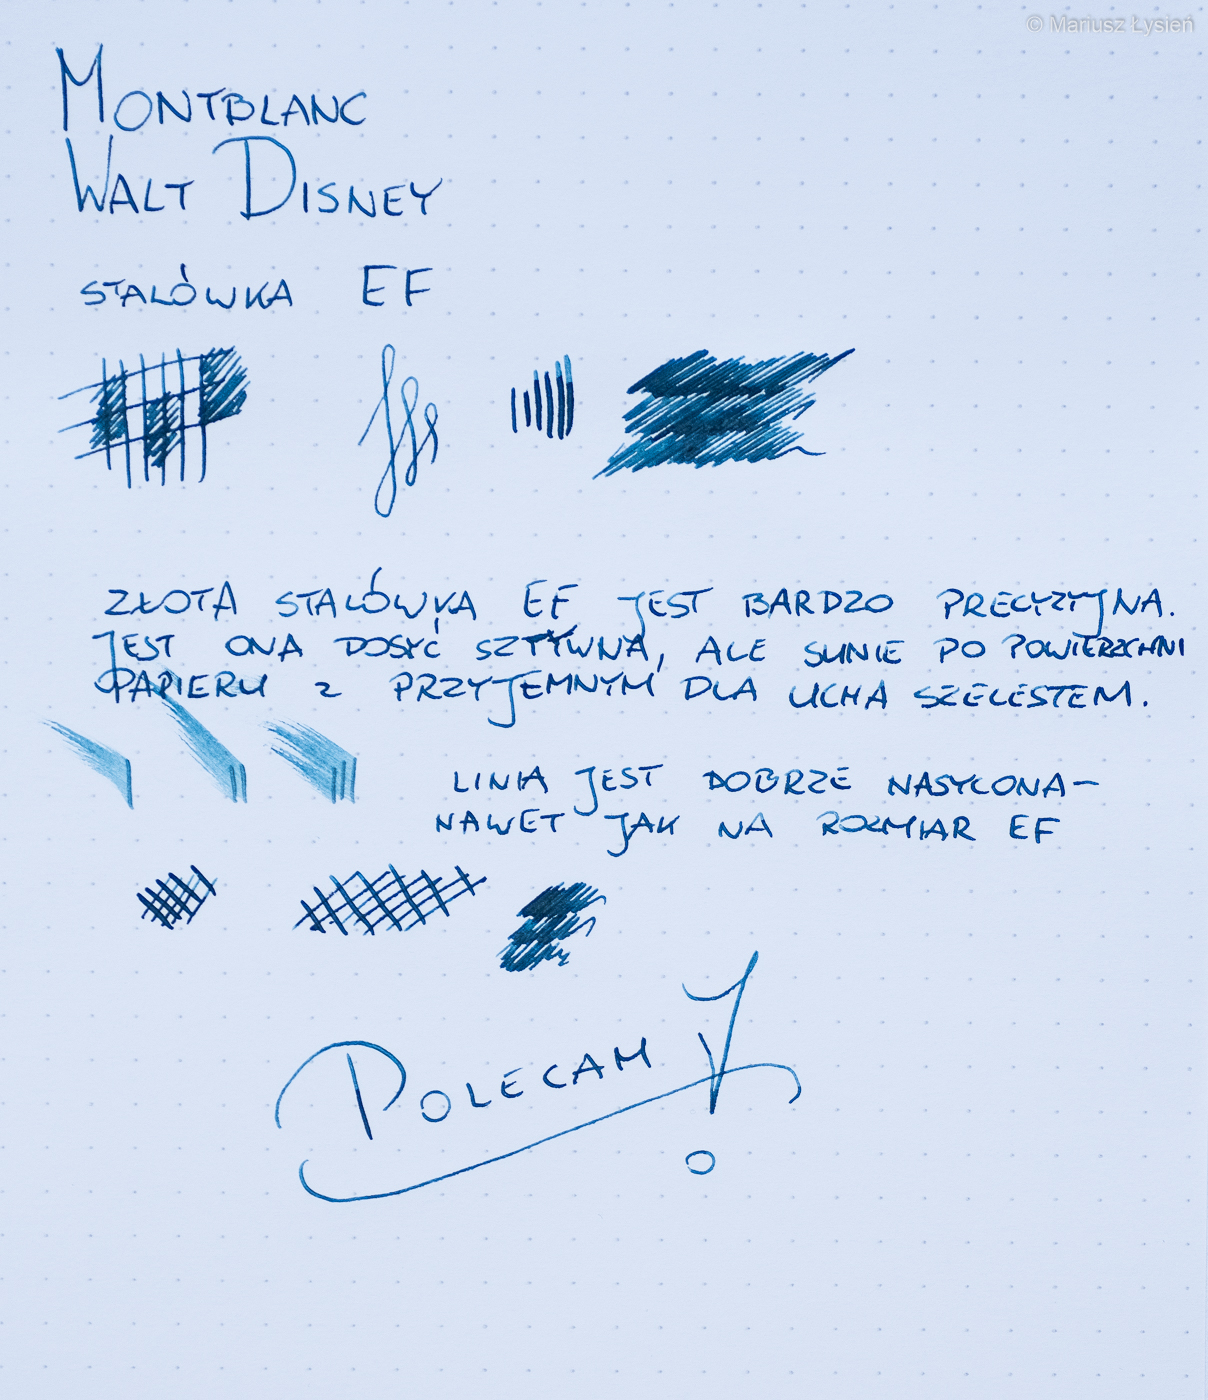 © Mariusz Łysień
MONTBLANC
WALT DISNEY
STALÓWKA EF
ZŁOTA STALÓWKA EF JEST BARDZO PRECYZYJNA.
JEST ONA DOSYĆ SZTYWNA, ALE SUNIE PO POWIERZCHNI
PAPIERU Z PRZYJEMNYM DLA UCHA SZELESTEM.
LINIA JEST DOBRZE NASYCONA–
NAWET JAK NA ROZMIAR EF
POLECAM!